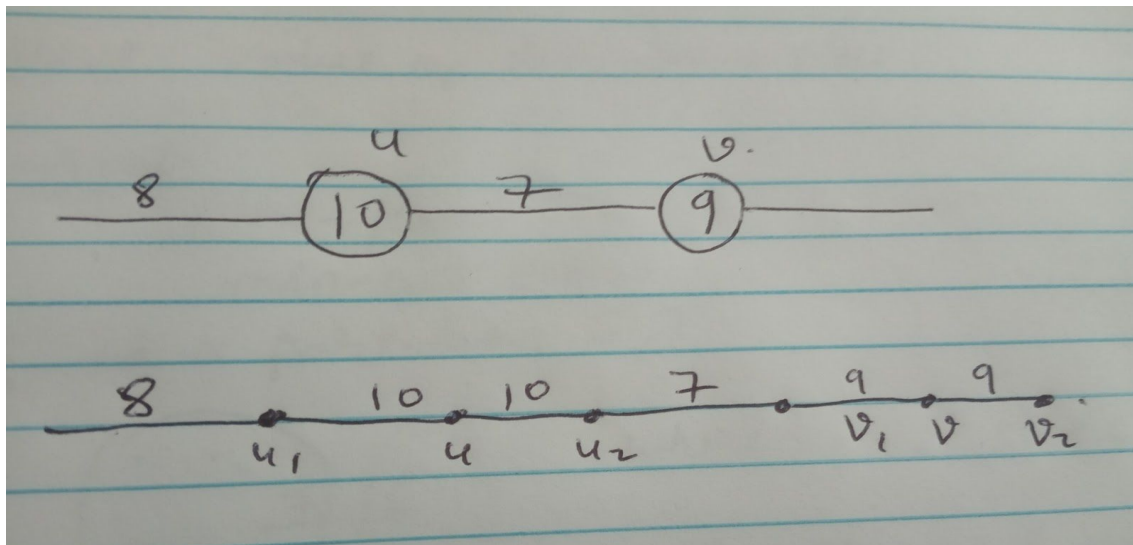 u v.
8 10 7 9
8 10 10 7 9 9
u1 u u2 v1 v v2